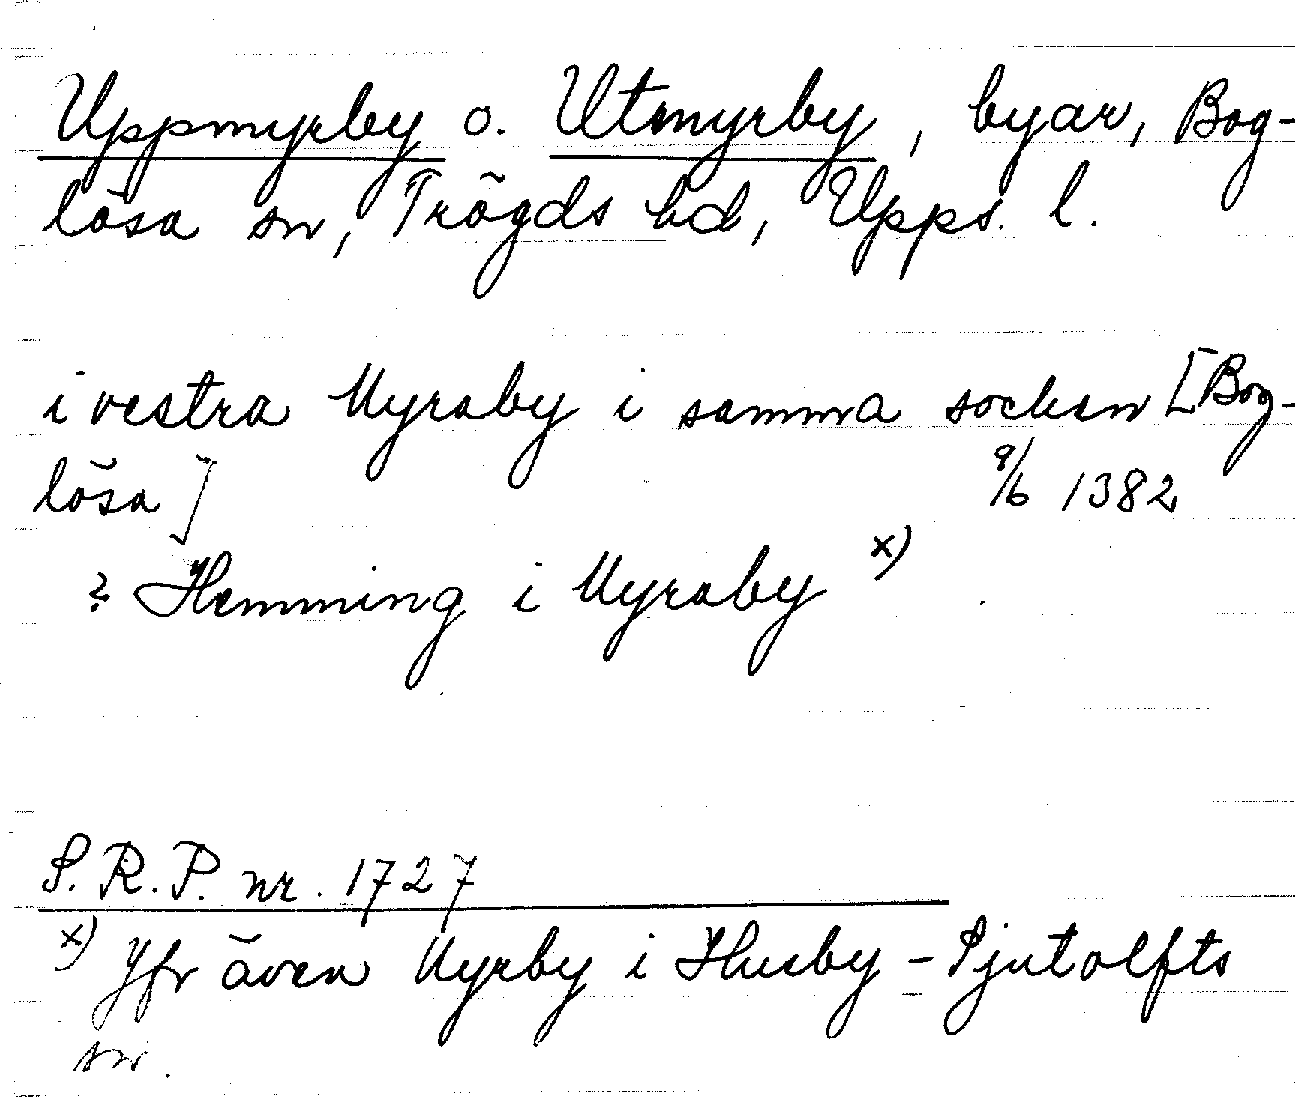 Uppmyrby o. Utmyrby, byar, Bog-
lösa sn, Trögds hd, Upps. l.
i vestra Myraby i samma socken [Bog-
lösa] 9/6 1382
? Hemming i Myraby x)
S.R.P. nr. 1727
x) Jfr även Myrby i Husby-Sjutolfts
sn.